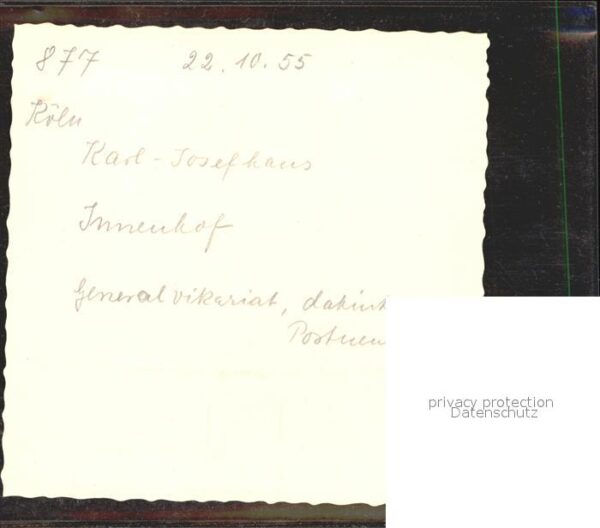 877 22.10.55
Köln
Karl-Josefhaus
Innenhof
Generalvikariat, dahint
Postneu
privacy protection
Datenschutz